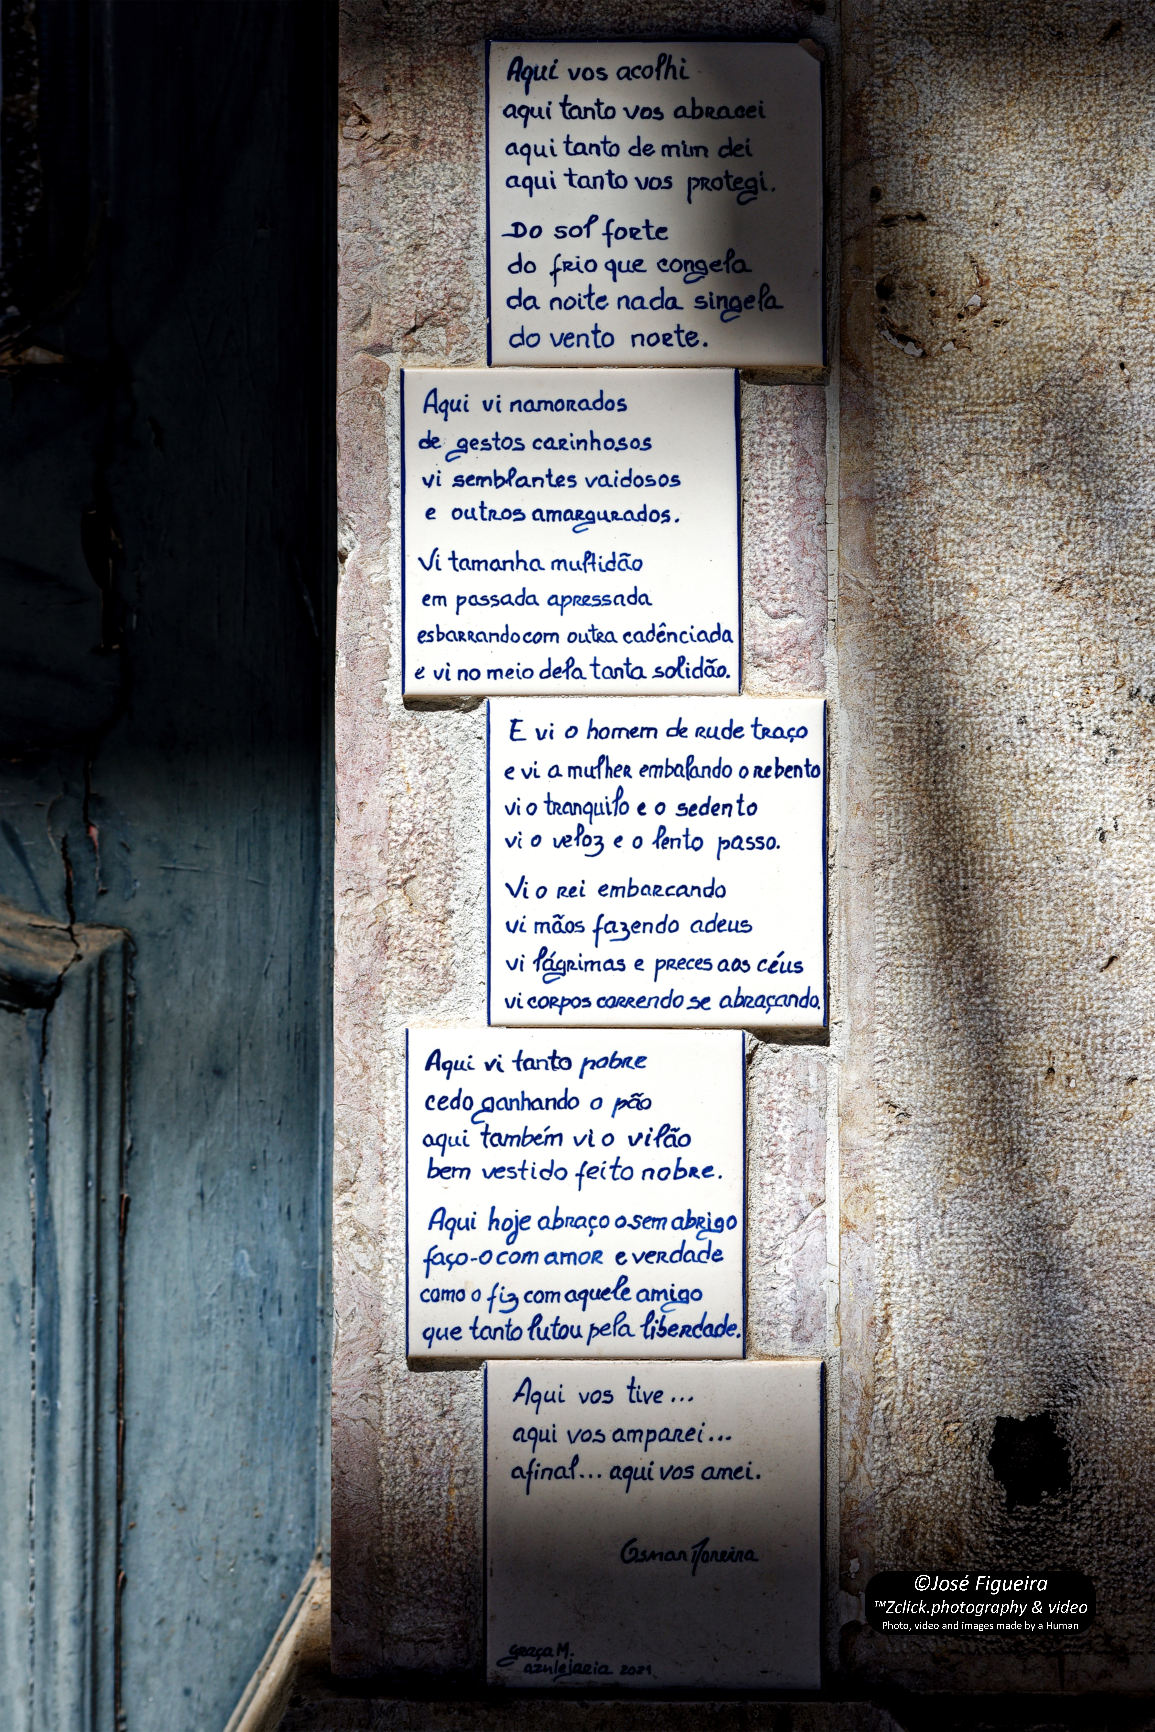 Aqui vos acolhi
aqui tanto vos abracei
aqui tanto de mim dei
aqui tanto vos protegi.
Do sol forte
do frio que congela
da noite nada singela
do vento norte.
Aqui vi namorados
de gestos carinhosos
vi semblantes vaidosos
e outros amargurados.
Vi tamanha multidão
em passada apressada
esbarrando com outra cadênciada
e vi no meio dela tanta solidão.
E vi o homem de rude traço
e vi a mulher embalando o rebento
vi o tranquilo e o sedento
vi o veloz e o lento passo.
Vi o rei embarcando
vi mãos fazendo adeus
vi lágrimas e preces aos céus
vi corpos correndo se abraçando.
Aqui vi tanto pobre
cedo ganhando o pão
aqui também vi o vilão
bem vestido feito nobre.
Aqui hoje abraço o sem abrigo
faço-o com amor e verdade
como o fiz com aquele amigo
que tanto lutou pela liberdade.
Aqui vos tive...
aqui vos amparei...
afinal... aqui vos amei.
Osmar Moreira
Graça M.
azulejaria 2021
©José Figueira
™Zclick.photography & video
Photo, video and images made by a Human